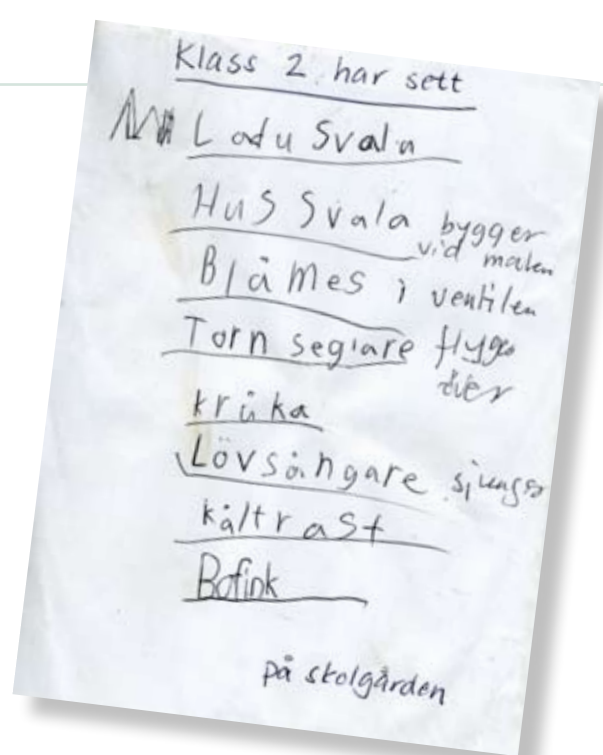 Klass 2 har sett
Ladu Svala
Hus Svala bygger
vid maten
Blå Mes i ventilen
Torn seglare flyger
över
kråka
Lövsångare sjunger
kåltrast
Bofink
på skolgården